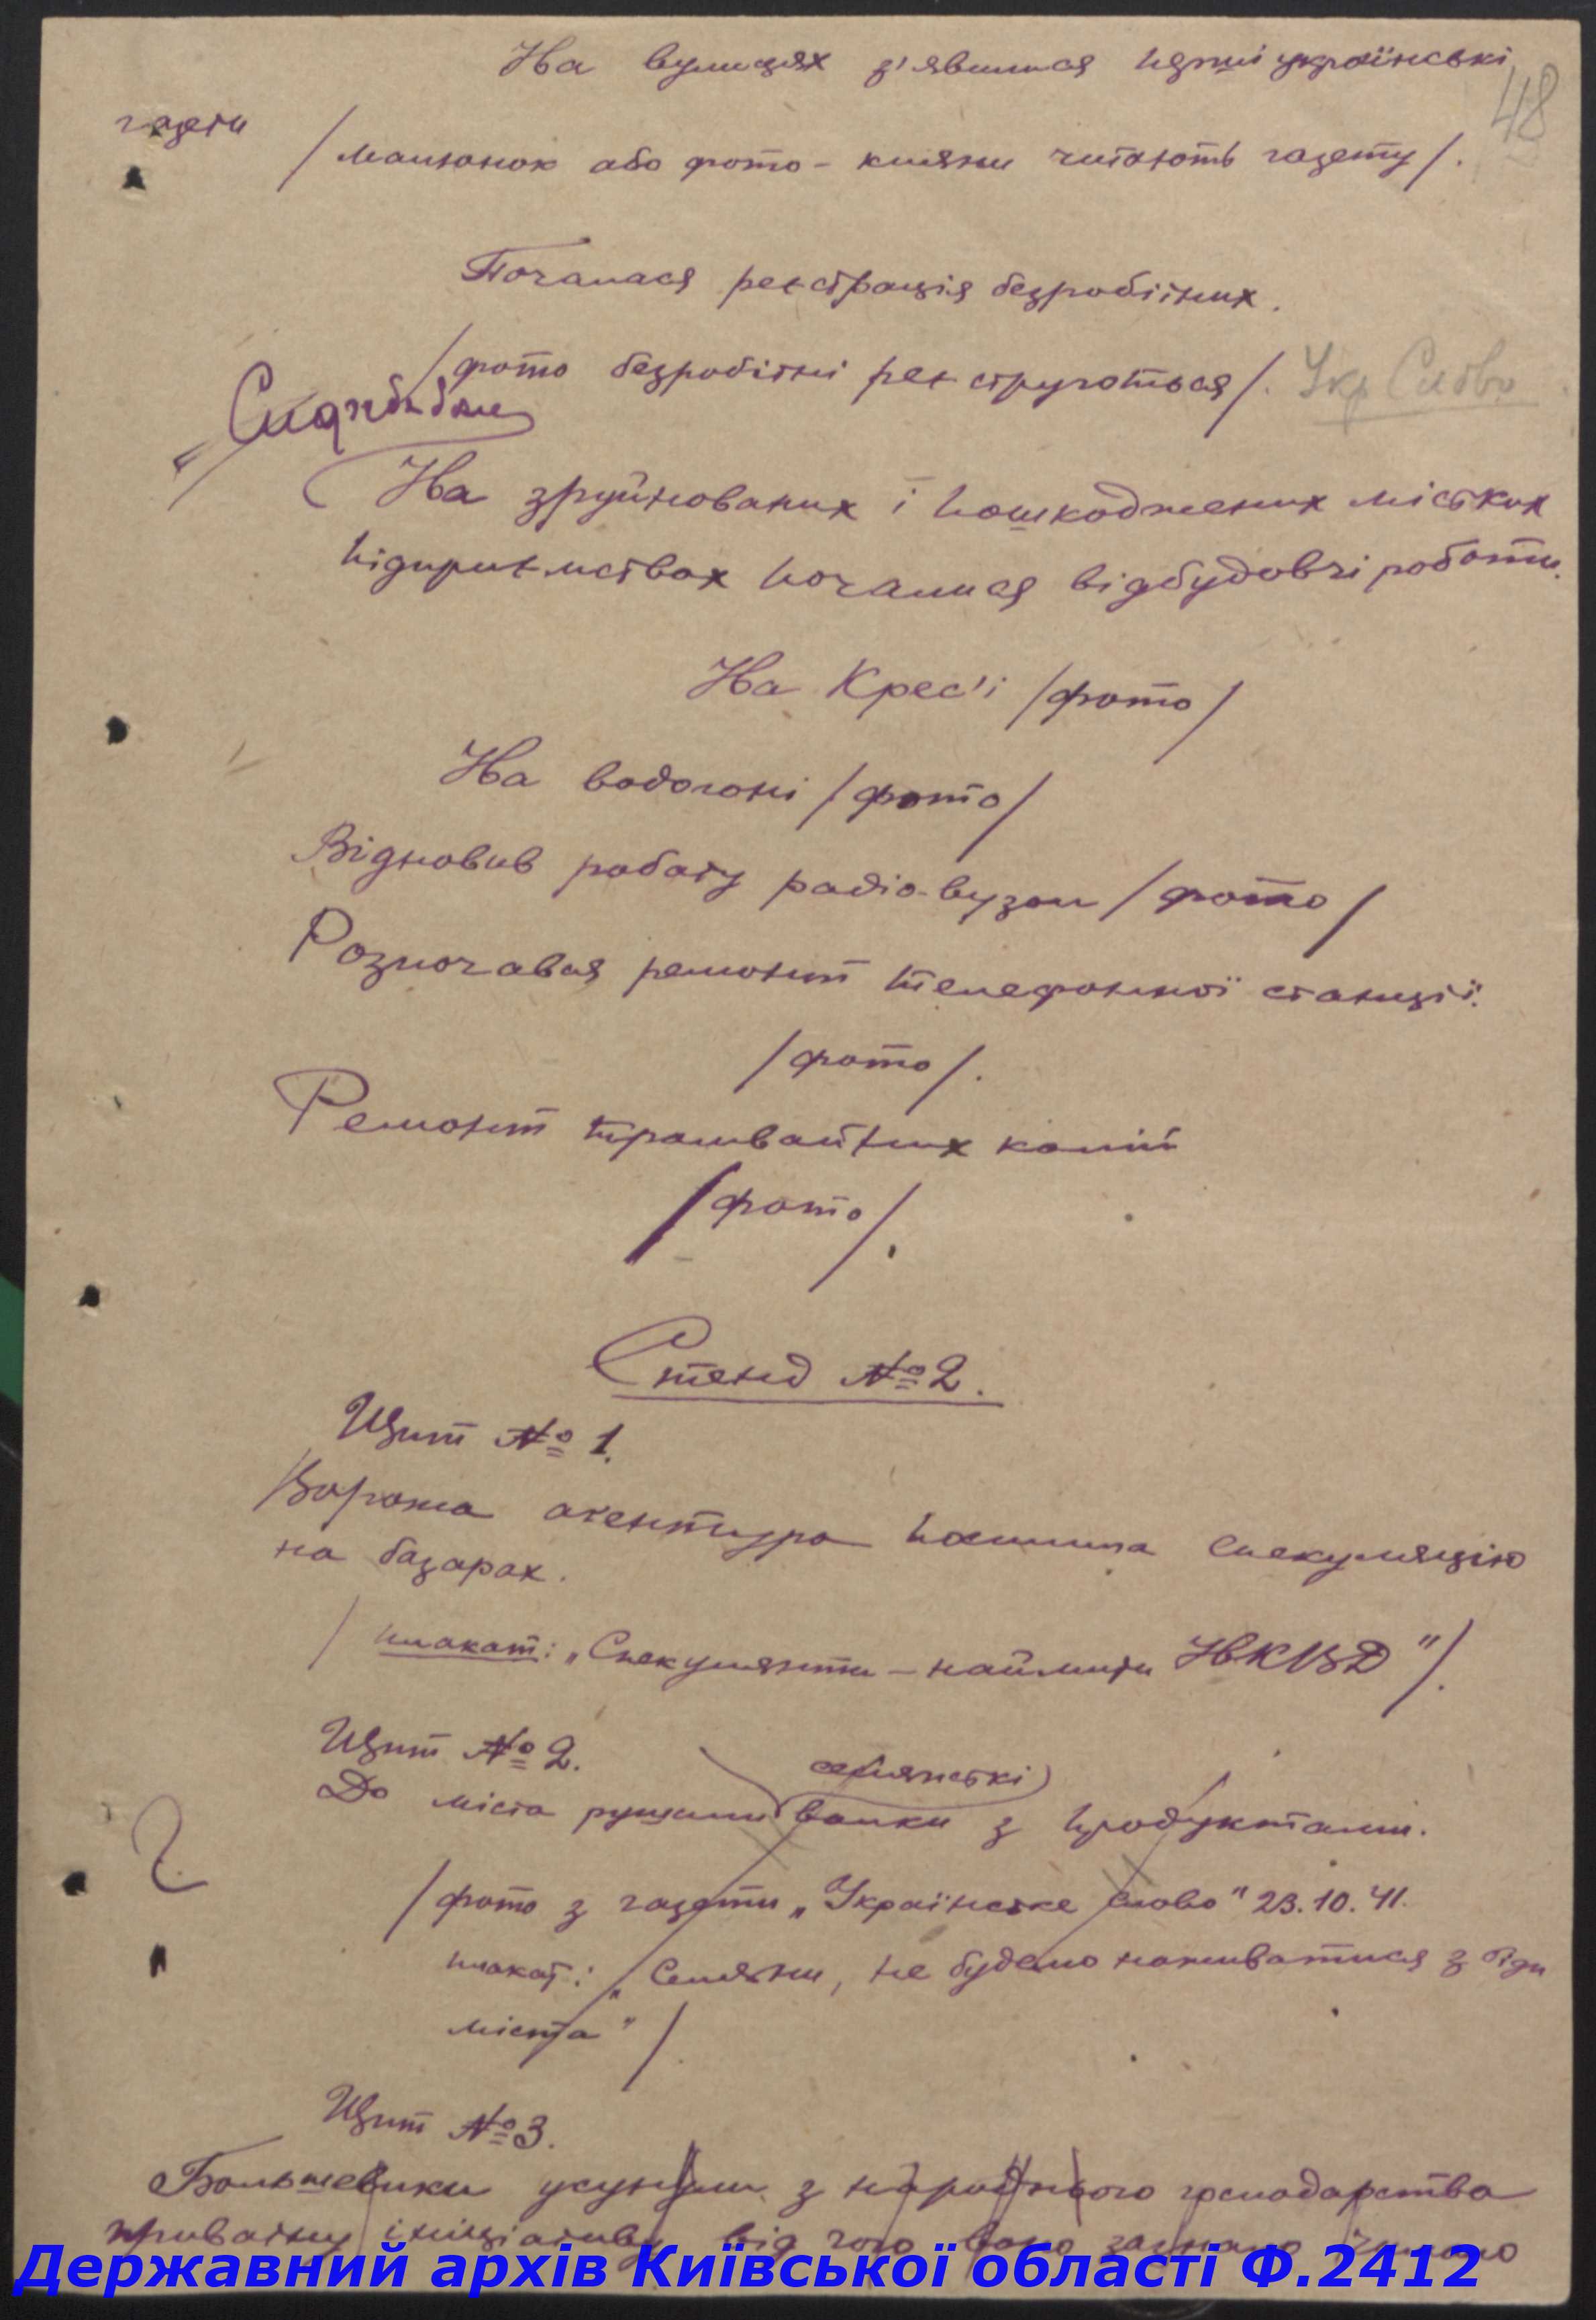 На вулицях з'явилися перші українські
48
газети
/малюнок або фото - кияни читають газету/.
Почалася реєстрація безробітних.
/фото безробітні реєструються/. Укр Слово
На зруйнованих і пошкоджених міських
підприємствах почалися відбудовчі роботи.
На Крес'і /фото/
На водогоні /фото/
Відновив роботу радіо-вузол /фото/
Розпочався ремонт телефонної станції.
/фото/.
Ремонт трамвайних колій
/фото/.
Стенд №2.
Щит № 1.
Ворожа агентура спекуляцію
на базарах.
/плакат: „Спекулянти – наймити НКВД"/.
Щит № 2.
селянські
До міста рушили валки з продуктами.
/фото з газети „Українське слово" 23.10.41.
плакат: „Селяни, не будемо наживатися з біди
міста"/
Щит №3.
Большевики усунули з народнього господарства
приватну ініціативу, від чого воно зазнало
Державний архів Київської області Ф.2412